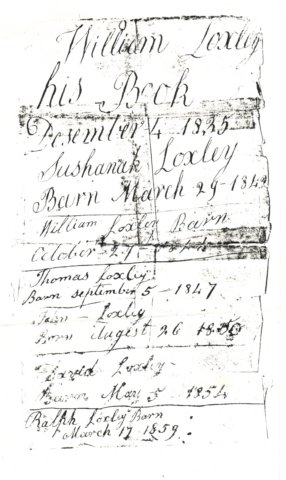 William Loxley
his Book
Desember 4 1835
Sushanah Loxley
Barn March 29 1842
William Loxley Barn
October 27
Thomas Loxley
Barn september 5 - 1847
Loxley
Born August 26 1850
David Loxley
Barn May 5 1854
Ralph Loxley Barn
March 17 1859.